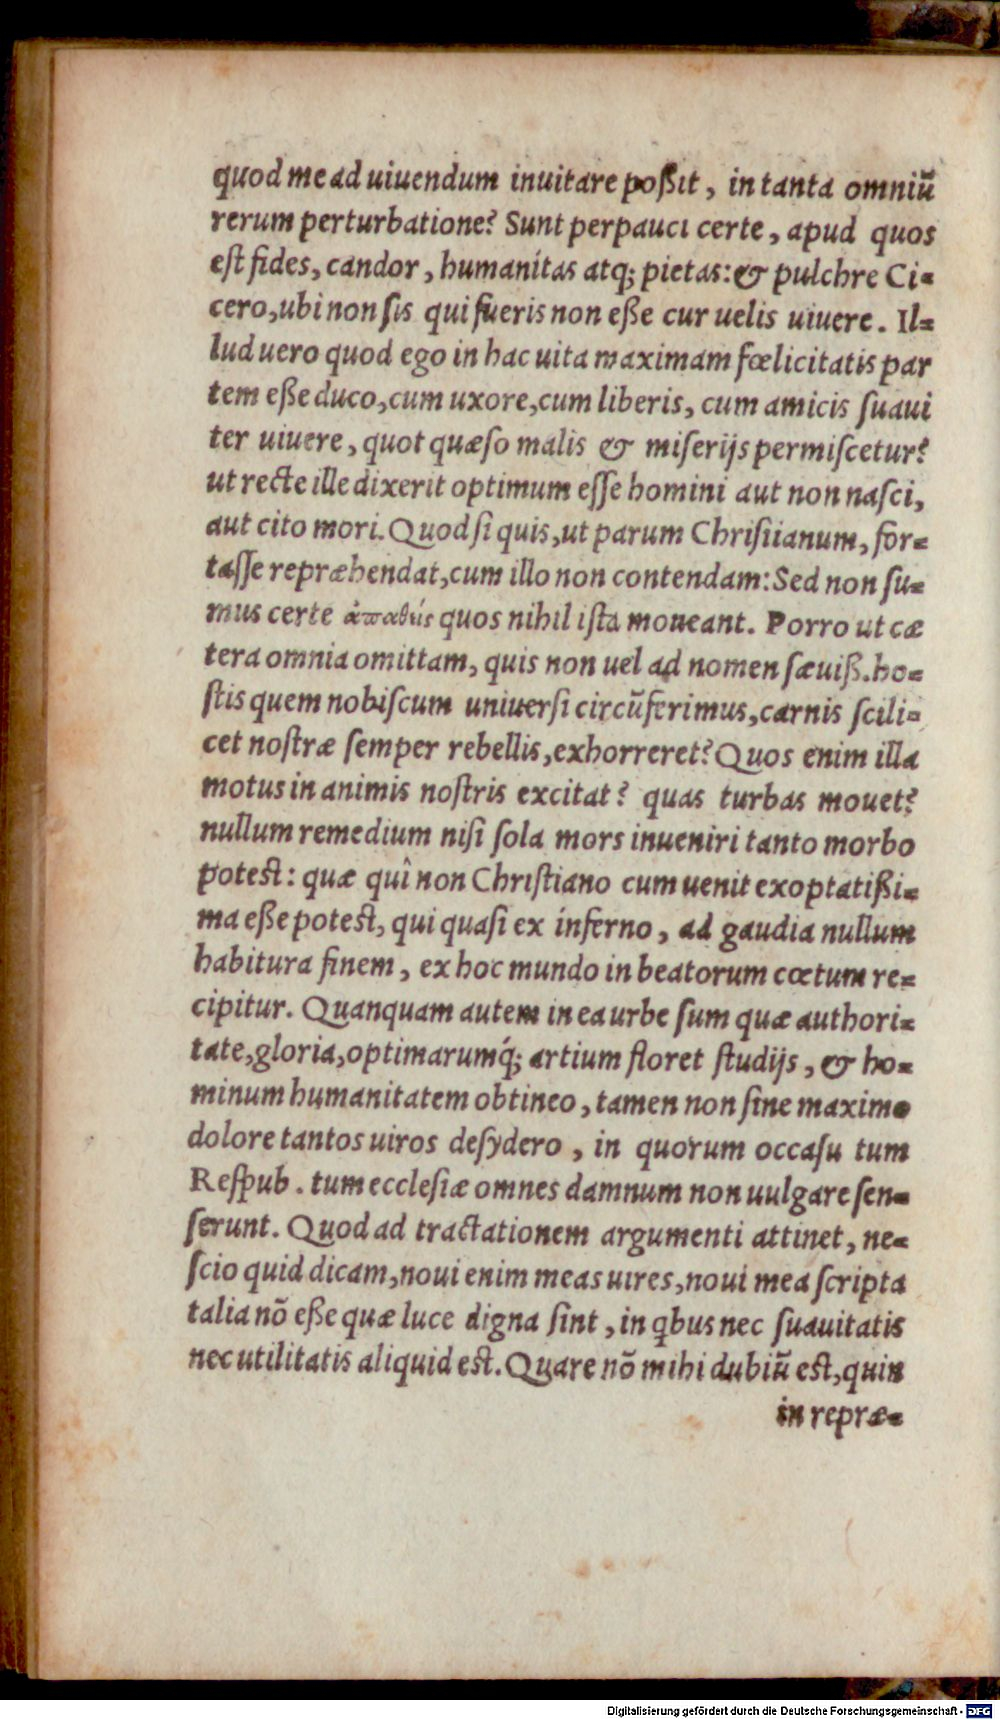 quod me ad uiuendum inuitare poßit, in tanta omniũ
rerum perturbatione? Sunt perpauci certe, apud quos
eſt fides, candor, humanitas atq; pietas: & pulchre Ci=
cero, ubi non ſis qui fueris non eße cur uelis uiuere. Il=
lud uero quod ego in hac uita maximam fœlicitatis par
tem eße duco, cum uxore, cum liberis, cum amicis ſuaui
ter uiuere, quot quæſo malis & miſerijs permiſcetur?
ut recte ille dixerit optimum eſſe homini aut non naſci,
aut cito mori. Quod ſi quis, ut parum Chriſtianum, for=
taſſe repræhendat, cum illo non contendam: Sed non ſu=
mus certe ἀπαθεῖς quos nihil iſta moueant. Porro ut cæ
tera omnia omittam, quis non uel ad nomen ſæuiß. ho=
ſtis quem nobiſcum uniuerſi circũferimus, carnis ſcili=
cet noſtræ ſemper rebellis, exhorreret? Quos enim illa
motus in animis noſtris excitat? quas turbas mouet?
nullum remedium niſi ſola mors inueniri tanto morbo
poteſt: quæ quî non Chriſtiano cum uenit exoptatißi=
ma eße poteſt, qui quaſi ex inferno, ad gaudia nullum
habitura finem, ex hoc mundo in beatorum cœtum re=
cipitur. Quanquam autem in ea urbe ſum quæ authori=
tate, gloria, optimarumq́; artium floret ſtudijs, & ho=
minum humanitatem obtineo, tamen non ſine maximo
dolore tantos uiros deſydero, in quorum occaſu tum
Reſpub. tum eccleſiæ omnes damnum non uulgare ſen=
ſerunt. Quod ad tractationem argumenti attinet, ne=
ſcio quid dicam, noui enim meas uires, noui mea ſcripta
talia nõ eße quæ luce digna ſint, in qbus nec ſuauitatis
nec utilitatis aliquid eſt. Quare nõ mihi dubiũ eſt, quin
in repræ=
Digitalisierung gefördert durch die Deutsche Forschungsgemeinschaft - DFG